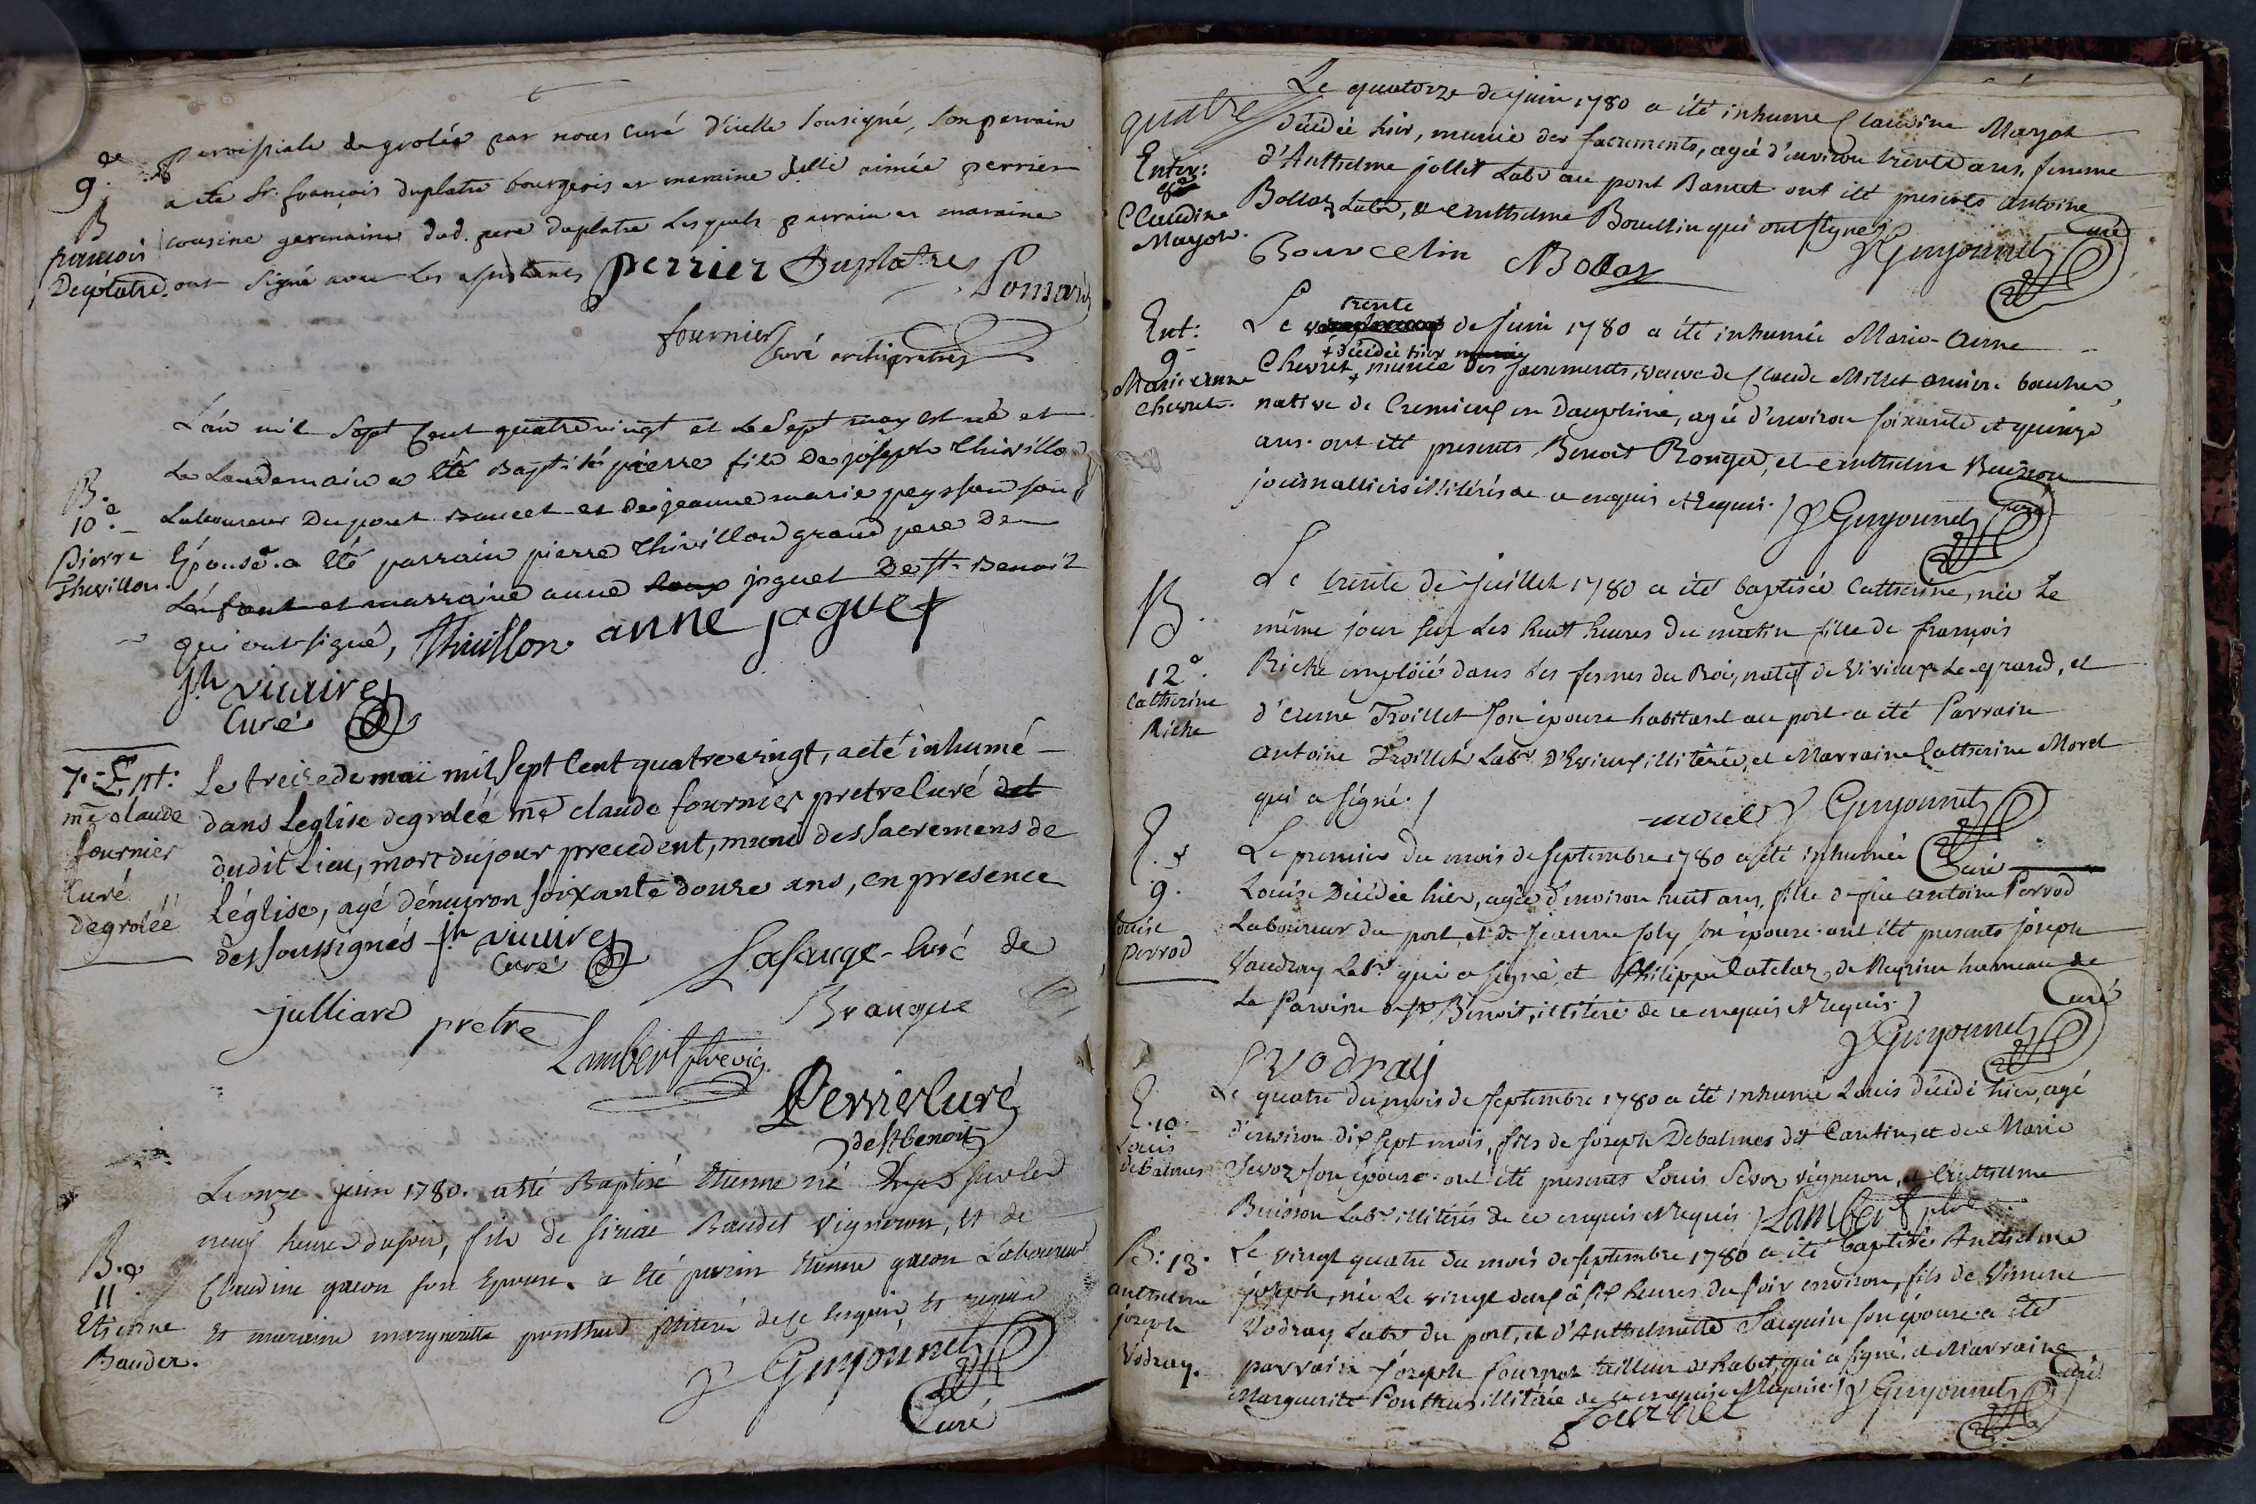 9.e
B
françois
Duplatre.
paroissiale de grolée par nous curé d'icelle sousigné, son parrain
a ete Sr. françois duplatre bourgeois et maraine delle aimée perrier
cousine germaine dud. pere duplatre lesquels parrain et maraine
ont signé avec les assistants perrier Duplatre Ponsard
fournier
curé archipretre
B.
10.e
Pierre
Thivillon.
L'an mil sept cent quatrevingt et le sept may est né et
le landemain a été Baptisé pierre fils De joseph Thivillon
Laboureur Du pont Bancet et de jeanne marie peysson son
Epouse. a été parrain pierre Thivillon grand pere De
L'enfant et marraine anne joguet De St. Benoit
qui ont signé, Thivillon. anne joguet
jh vicaire
Curé
7.e Ent:
me claude
fournier
Curé
degrolée
Le treize de mai mil sept cent quatrevingt, a eté inhumé
dans leglise degrolée me claude fournier pretre Curé
dudit Lieu, mort du jour precedent, muni des sacremens de
léglise, agé dénviron soixante douze ans, en presence
des soussignés jh vicaire
Curé
Lasauge Curé de
Brangue
julliard pretre
Lambert
Perrier Curé
de St benoit
B.e
11
Etienne
Baudet.
Le onze juin 1780. a été Baptisé Etienne né sur les
neuf heures du soir, fils de Baudet vigneron, et de
Claudine gacon son Epouse. a été parin Etienne gacon Laboureur
et maraine marguerite ponthus illiteré de ce enquis et requis
Guyonnet
Curé
quatre
Enter:
8e
Claudine
Mayot.
Le quatorze de juin 1780 a été inhumé Claudine Mayot
décédée hier, munie des sacrements, agée d'environ trente ans, femme
d'Anthelme jollet Labr au pont Bancet ont été presents antoine
Bollaz Labr, & anthelme Bourcelin qui ont signé
Bourcelin Bollaz Guyonnet Curé
Ent:
9
Marie anne
Chevret.
trente
Le de juin 1780 a été inhumée Marie-Anne
+ décédée hier
Chevret + munie des sacrements, veuve de Claude Millet boucher,
native de Cremieux en Dauphiné, agée d'environ soixante et quinze
ans. ont été presents Benoit Rouger, et anthelme Buisson
journalliers illitérés de ce enquis et requis. Guyonnet Curé
B.
12e.
Catherine
Riche
Le trente de juillet 1780 a été baptisée Catherine, née le
même jour sur les huit heures du matin fille de françois
Riche emploié dans les fermes du Roi, natif de Virieux Le grand, et
d'anne Troillet son épouse habitant au port a été Parrain
antoine Troillet Labr. D'Evieux illitéré, et Marraine Catherine Morel
qui a signé.
morel Guyonnet
Curé
E.
9.
Louise
Perrod
Le premier du mois de septembre 1780 a été inhumée
Louise Décédée hier, agée d'environ huit ans, fille de feu antoine Perrod
Laboureur du port, et de jeanne joly son épouse. ont été presents joseph
Vaudray Labr. qui a signé, et Philippe Catelaz, de hameau de
la Paroisse de St Benoit, illitéré de ce enquis et requis.
Guyonnet Curé
Vodray
E. 10.
Louis
debalmes
Le quatre du mois de septembre 1780 a été inhumé Louis décédé hier, agé
d'environ dix sept mois, fils de joseph Debalmes dit Cantin, et de Marie
Sevoz son épouse. ont été presents Louis Sevoz vigneron, & Anthelme
Buisson Labr. illitérés de ce enquis et requis Lambert
B: 13.
anthelme
joseph
Vodray.
Le vingt quatre du mois de septembre 1780 a été baptisé Anthelme
joseph, né le vingt deux à six heures du soir environ, fils de
Vodray Labr du port, et d'Anthelmette Jacquin son épouse. a été
parrain joseph fournet tailleur d'habit, qui a signé. & Marraine
Marguerite Ponthus illitérée de ce enquise & requise. Guyonnet Curé
fournet